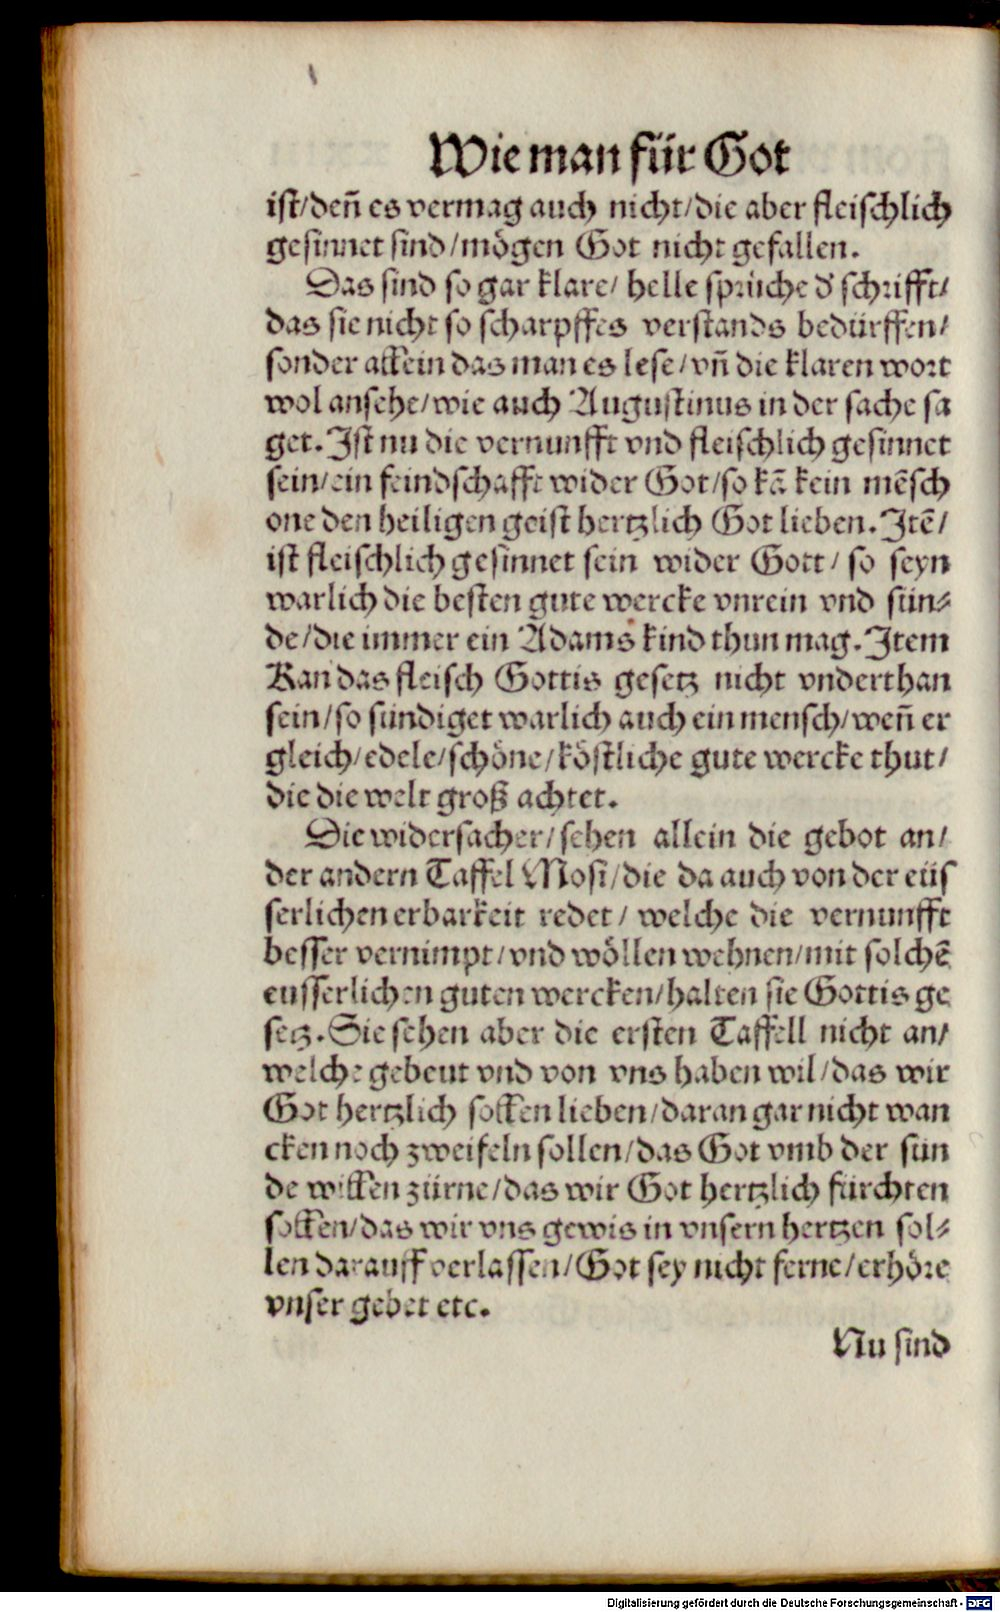 Wie man für Got
ist/deñ es vermag auch nicht/die aber fleischlich
gesinnet sind/mögen Got nicht gefallen.
Das sind so gar klare/ helle sprüche d' schrifft/
das sie nicht so scharpffes verstands bedürffen/
sonder allein das man es lese/vñ die klaren wort
wol ansehe/wie auch Augustinus in der sache sa
get. Ist nu die vernunfft vnd fleischlich gesinnet
sein/ein feindschafft wider Got/so kā kein mēsch
one den heiligen geist hertzlich Got lieben. Itē/
ist fleischlich gesinnet sein wider Gott/ so seyn
warlich die besten gute wercke vnrein vnd sün⸗
de/die immer ein Adams kind thun mag. Item
Kan das fleisch Gottis gesetz nicht vnderthan
sein/so sündiget warlich auch ein mensch/weñ er
gleich/edele/schöne/köstliche gute wercke thut/
die die welt groß achtet.
Die widersacher/sehen allein die gebot an/
der andern Taffel Mosi/die da auch von der eüs
serlichen erbarkeit redet/ welche die vernunfft
besser vernimpt/vnd wöllen wehnen/mit solchē
eusserlichen guten wercken/halten sie Gottis ge
setz. Sie sehen aber die ersten Taffell nicht an/
welche gebeut vnd von vns haben wil/das wir
Got hertzlich sollen lieben/daran gar nicht wan
cken noch zweifeln sollen/das Got vmb der sün
de willen zürne/das wir Got hertzlich fürchten
sollen/das wir vns gewis in vnsern hertzen sol⸗
len darauff verlassen/Got sey nicht ferne/erhöre
vnser gebet etc.
Nu sind
Digitalisierung gefördert durch die Deutsche Forschungsgemeinschaft - DFG